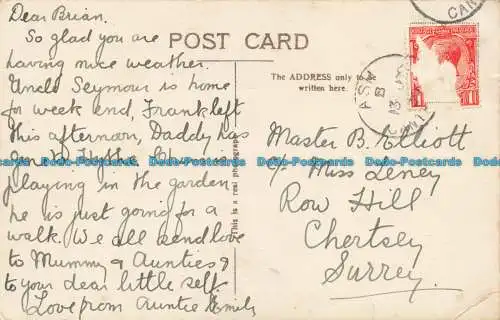 Dear Brian.
So glad you are
having nice weather.
Uncle Seymour is home
for week end, Frank left
this afternoon, Daddy has
Hythe
playing in the garden
he is just going for a
walk. We all send love
to Mummy & Aunties &
to your dear little self.
Love from Auntie Emily
POST CARD
The ADDRESS only to be
written here.
This is a real photograph
Master B. Elliott
c/o Miss Leney
Row Hill
Chertsey
Surrey.
ASH
CAN
Dodo-Postcards Dodo-Postcards Dodo-Postcards Dodo-Postcards